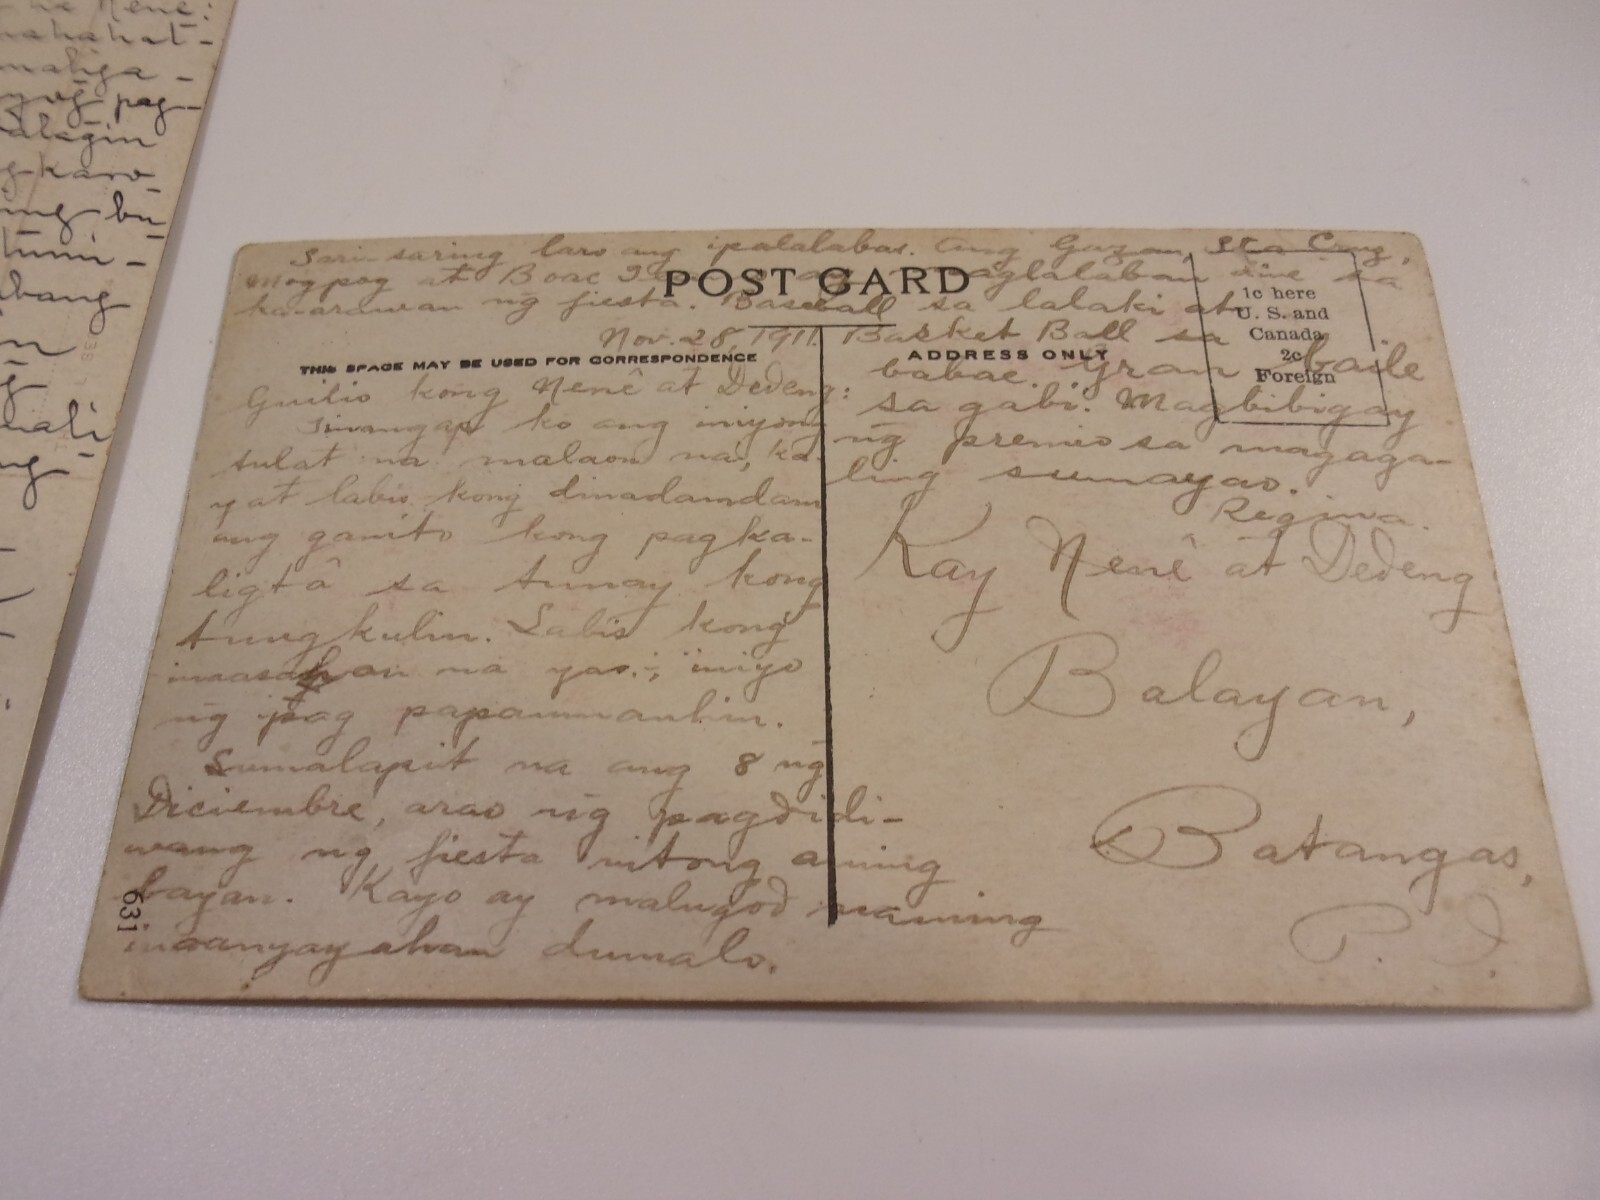 te Nenê:
nahahat-
maliga-
pag-
alagin
g karo-
ung bu
tumi-
abang
n
g
hali
ng
Sari-saring laro ang ipalalabas. Ang Gazan, Sta Cruz,
Mogpog at Boac maglalaban dine sa
ka-arawan ng fiesta. Baseball sa lalaki at
POST CARD
1c here
U. S. and
Canada
2c
Foreign
Nov. 28, 1911.
THIS SPACE MAY BE USED FOR CORRESPONDENCE
Guilio kong Nenê at Dedeng:
Tinangap ko ang iniyong
sulat na malaon na, ka-
yat labis kong dinadamdam
ang ganito kong pagka-
ligtâ sa tunay kong
tungkulin. Labis kong
inaasahan na iniyo
ng pag papaumanhin.
Sumalapit na ang 8 ng
Diciembre, arao ng pagdidi-
wang ng fiesta nitong aming
bayan. Kayo ay malugod naming
inaanyayahan dumalo.
631
Basket Ball sa
ADDRESS ONLY
babae. Gran baile
sa gabi. Magbibigay
ng premio sa magaga-
ling sumayao.
Regina.
Kay Nenê at Dedeng
Balayan,
Batangas,
P. I.